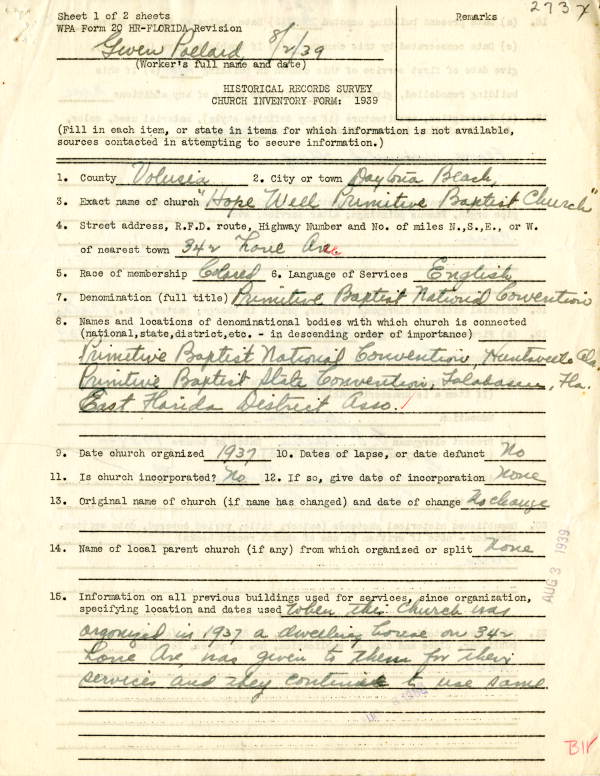 Sheet 1 of 2 sheets
Remarks
2737x
WPA Form 20 HR-FLORIDA Revision
Gwen Pollard 8/2/39
(Worker's full name and date)
HISTORICAL RECORDS SURVEY
CHURCH INVENTORY FORM: 1939
(Fill in each item, or state in items for which information is not available,
sources contacted in attempting to secure information.)
1. County Volusia 2. City or town Daytona Beach,
3. Exact name of church "Hope Well Primitive Baptist Church"
4. Street address, R.F.D. route, Highway Number and No. of miles N.,S.,E., or W.
of nearest town 342 Ave
5. Race of membership Colored 6. Language of Services English
7. Denomination (full title) Primitive Baptist National Convention
8. Names and locations of denominational bodies with which church is connected
(national,state,district,etc. - in descending order of importance)
Primitive Baptist National Convention, Ala.
Primitive Baptist State Convention, Fla.
East Florida District Asso.
9. Date church organized 1937 10. Dates of lapse, or date defunct No
11. Is church incorporated? No 12. If so, give date of incorporation None
13. Original name of church (if name has changed) and date of change No change
14. Name of local parent church (if any) from which organized or split None
AUG 3 1939
15. Information on all previous buildings used for services, since organization,
specifying location and dates used When this Church was
organized in 1937 a dwelling house on 342
Ave, was given to them for their
services and they continue to use same